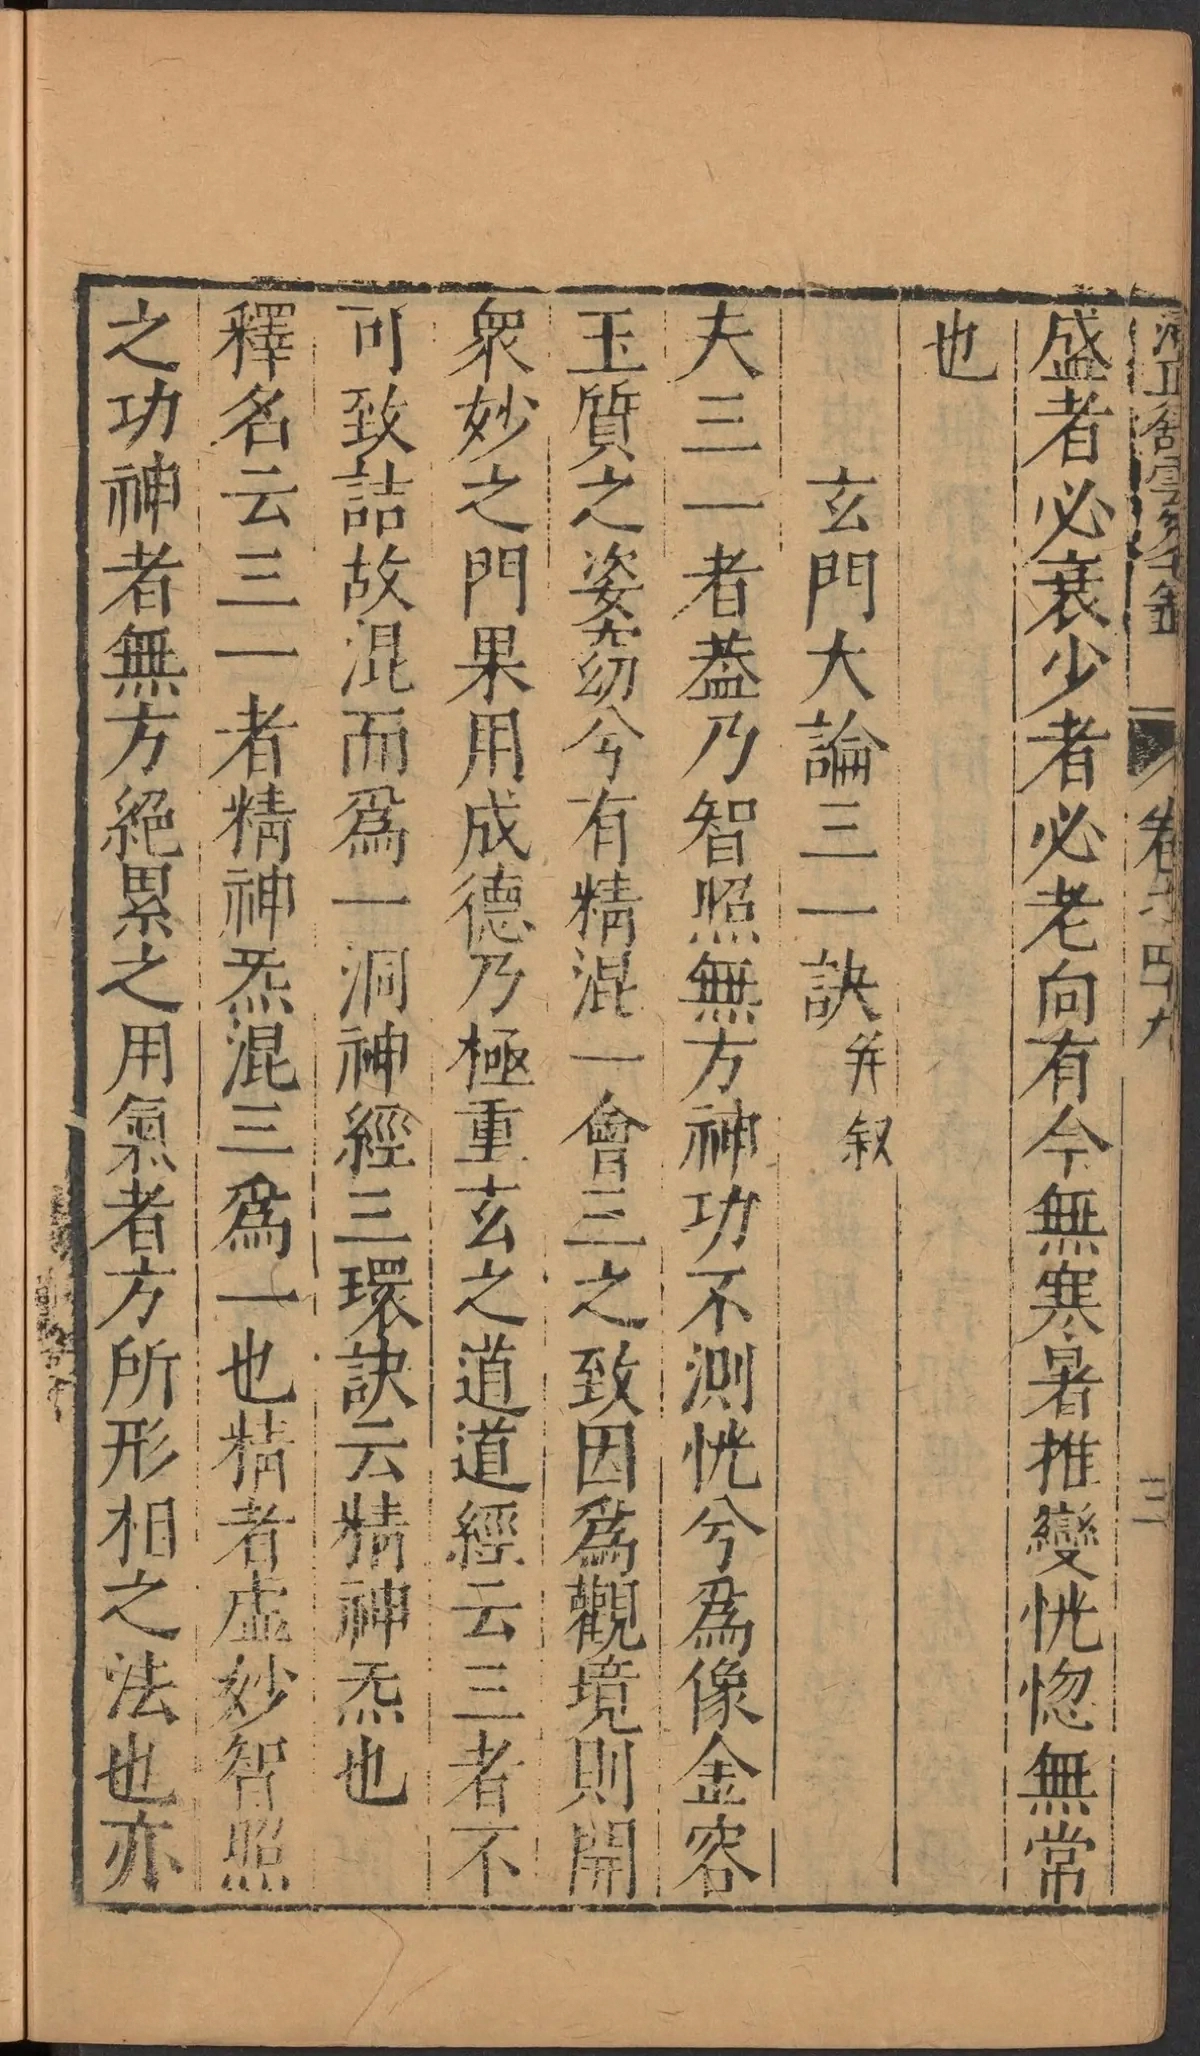 盛者必衰少者必老向有今無寒暑推變恍惚無常
也
玄門大論三一訣并叙
夫三一者葢乃智照無方神功不測恍兮爲像金容
玉質之姿窈兮有精混一會三之致因爲觀境則開
衆妙之門果用成德乃極重玄之道道經云三者不
可致詰故混而爲一洞神經三環訣云精神炁也
釋名云三一者精神炁混三爲一也精者虛妙智照
之功神者無方絕累之用氣者方所形相之法也亦